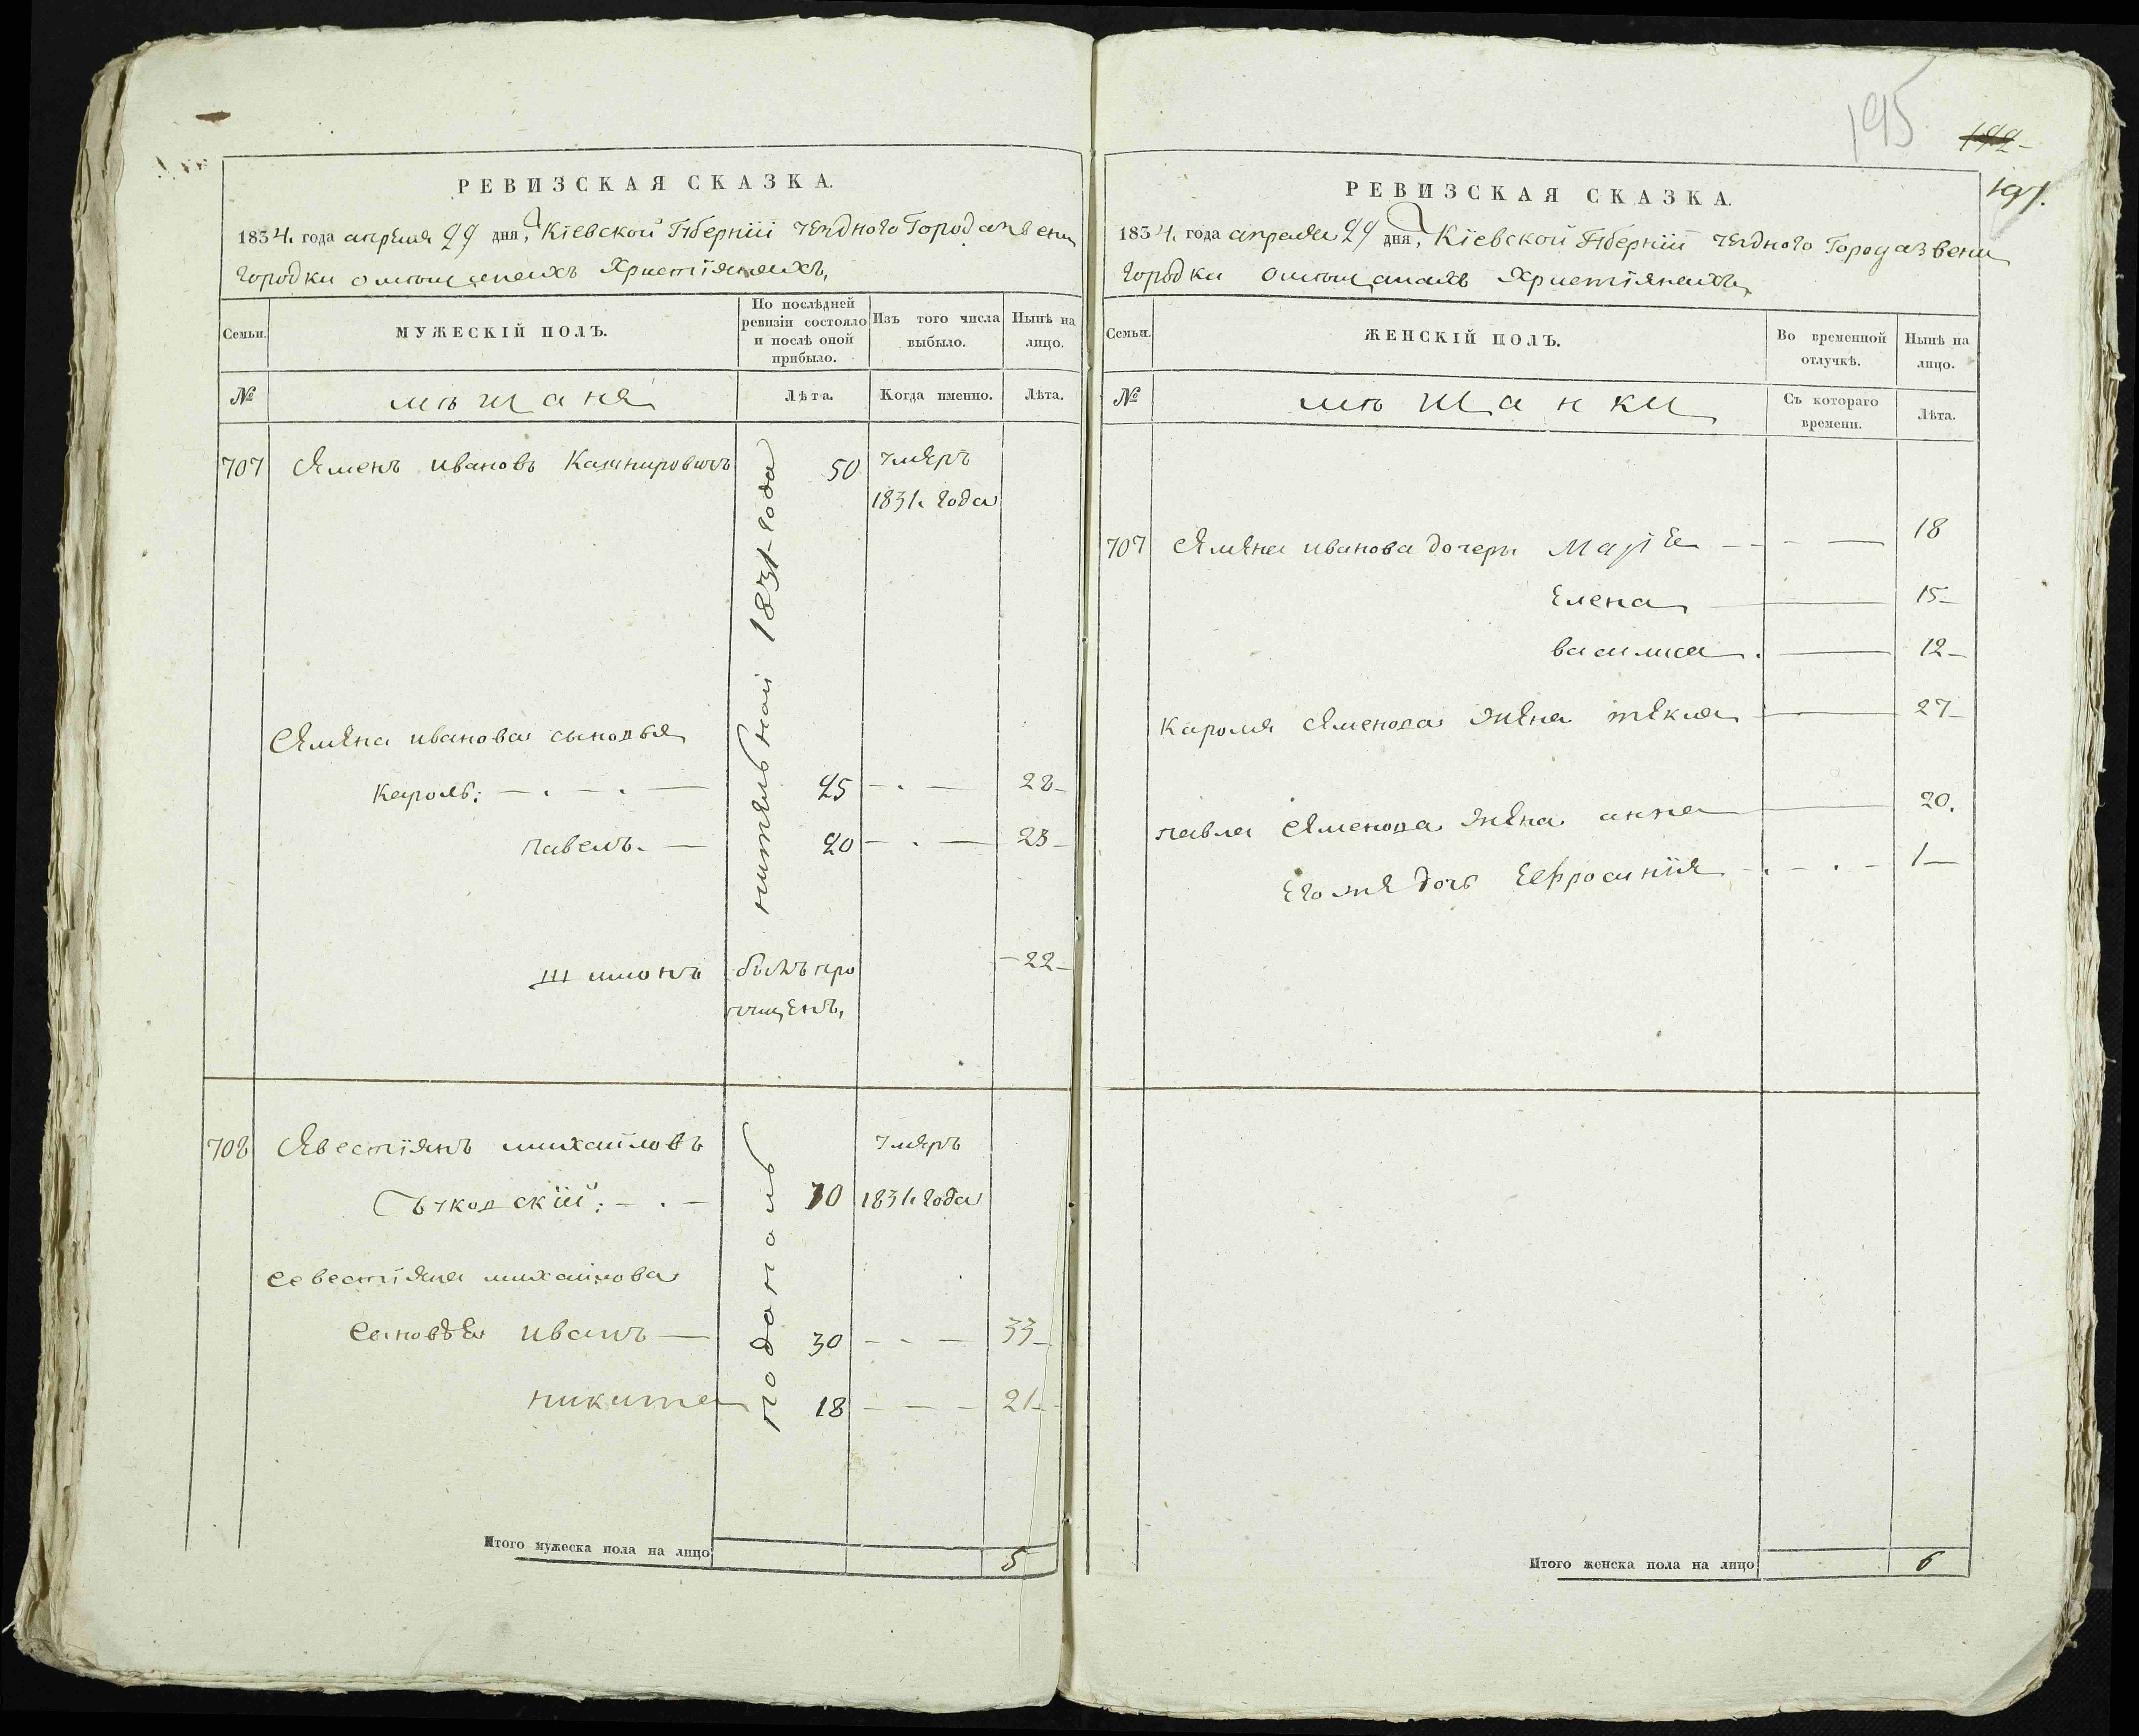 195
192
197.
РЕВИЗСКАЯ СКАЗКА.
1834. года апреля 29 дня, Кіевской Губерніи уезднаго Города звени
городки о мещанахъ Христіянахъ,
Семьи.
МУЖЕСКІЙ ПОЛЪ.
По послѣдней ревизіи состояло и послѣ оной прибыло.
Изъ того числа выбыло.
Нынѣ на лицо.
№
мѣщаня
Лѣта.
Когда именно.
Лѣта.
707 Семенъ ивановъ Кашпировичъ 50 умеръ
1831. года
1831 года
Семена иванова сыновья
Кароль: 25 28
павелъ. 20 23
шимонъ былъ про 22
пущенъ,
708 Севестіянъ михайловъ умеръ
70 1831. года
подоналъ
севестіяна михайлова
сыновья иванъ 30 33
никита 18 21
Итого мужеска пола на лицо 5
РЕВИЗСКАЯ СКАЗКА.
1834. года апреля 29 дня, Кіевской Губерніи уезднаго Города звени
городки о мещанахъ Христіянахъ,
Семьи.
ЖЕНСКІЙ ПОЛЪ.
Во временной отлучкѣ.
Нынѣ на лицо.
№
мѣщанки
Съ котораго времени.
Лѣта.
707 Семена иванова дочери Марія 18
Елена 15
василиса 12
Кароля Семенова жена текля 27
павла Семенова жена анна 20.
Его же дочь Ефросинія 1
Итого женска пола на лицо 6